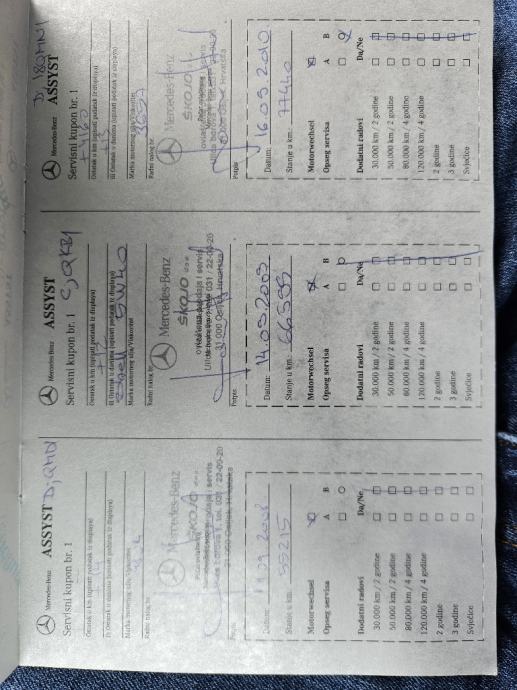 Mercedes-Benz ASSYST
Servisni kupon br. 1
Ostatak u km (upisati podatak iz displaya)
ili Ostatak u danima (upisati podatak iz displaya)
Marka motornog ulja/Viskozitet
Radni nalog br.
Mercedes-Benz
ŠKOJO
31 000 Osijek, Hrvatska
Potpis
Datum: 09.2008
Stanje u km: 55215
Motorwechsel
Opseg servisa A B
Dodatni radovi Da/Ne
30.000 km / 2 godine
50.000 km / 2 godine
80.000 km / 4 godine
120.000 km / 4 godine
2 godine
3 godine
Svjećice
Mercedes-Benz ASSYST
Servisni kupon br. 1
Ostatak u km (upisati podatak iz displaya)
ili Ostatak u danima (upisati podatak iz displaya)
Shell 5W40
Marka motornog ulja/Viskozitet
Radni nalog br.
Mercedes-Benz
ŠKOJO d.o.o.
prodaja i servis
031 / 22-09-20
31 000 Osijek, Hrvatska
Potpis
Datum: 14.09.2009
Stanje u km: 66599
Motorwechsel
Opseg servisa A B
Dodatni radovi Da/Ne
30.000 km / 2 godine
50.000 km / 2 godine
80.000 km / 4 godine
120.000 km / 4 godine
2 godine
3 godine
Svjećice
Mercedes-Benz ASSYST
Servisni kupon br. 1
Ostatak u km (upisati podatak iz displaya)
ili Ostatak u danima (upisati podatak iz displaya)
Marka motornog ulja/Viskozitet
Radni nalog br.
Mercedes-Benz
ŠKOJO
Potpis
Datum: 16.09.2010
Stanje u km: 77440
Motorwechsel
Opseg servisa A B
Dodatni radovi Da/Ne
30.000 km / 2 godine
50.000 km / 2 godine
80.000 km / 4 godine
120.000 km / 4 godine
2 godine
3 godine
Svjećice